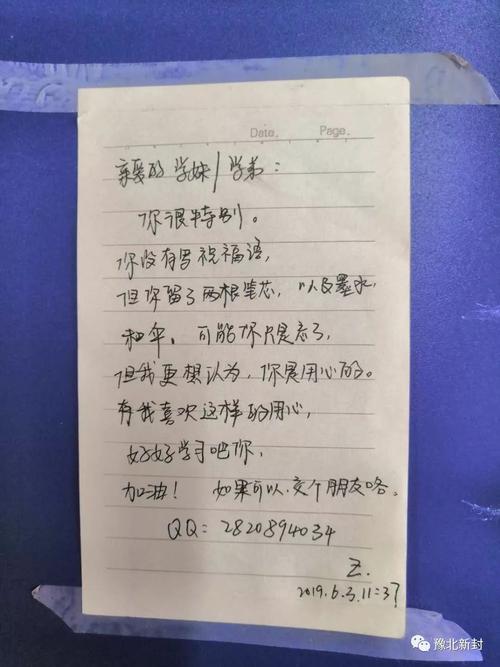 Date. Page.
亲爱的学妹/学弟：
你很特别。
你没有写祝福语，
但你留了两根笔芯，以及墨水，
和伞，可能你只是忘了，
但我更想认为，你是用心的。
有我喜欢这样的用心，
好好学习吧你，
加油！如果可以，交个朋友咯。
QQ：2820894034
Z.
2019.6.3.11:37
豫北新封